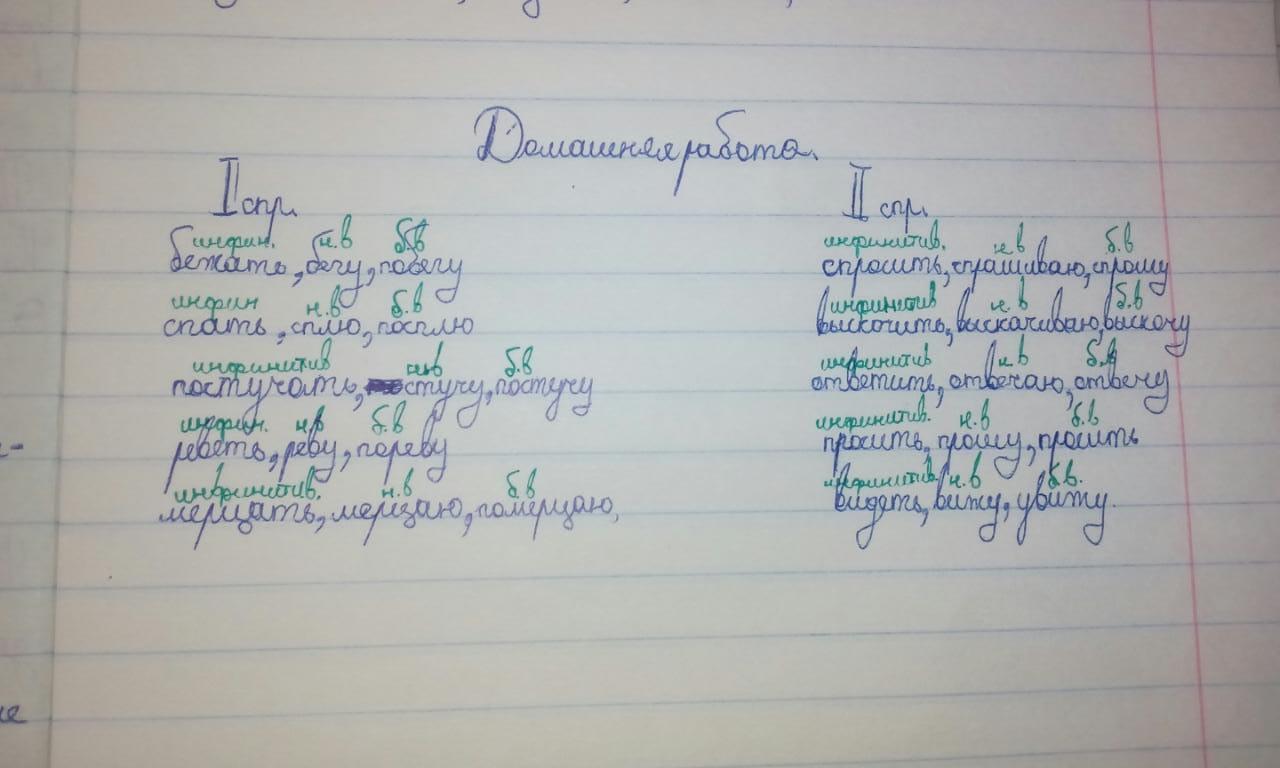 Домашняя работа.
I спр.
инфин. н.в б.в
бежать, бегу, побегу
инфин н.в б.в
спать, сплю, посплю
инфинитив н.в б.в
постучать, стучу, постучу
инфин. н.в б.в
реветь, реву, пореву
инфинитив. н.в б.в
мерцать, мерцаю, померцаю,
II спр.
инфинитив. н.в б.в
спросить, спрашиваю, спрошу
инфинитив н.в б.в
выскочить, выскачиваю, выскочу
инфинитив н.в б.в
ответить, отвечаю, отвечу
инфинитив. н.в б.в
просить, прошу, просить
инфинитив. н.в б.в.
видеть, вижу, увижу.